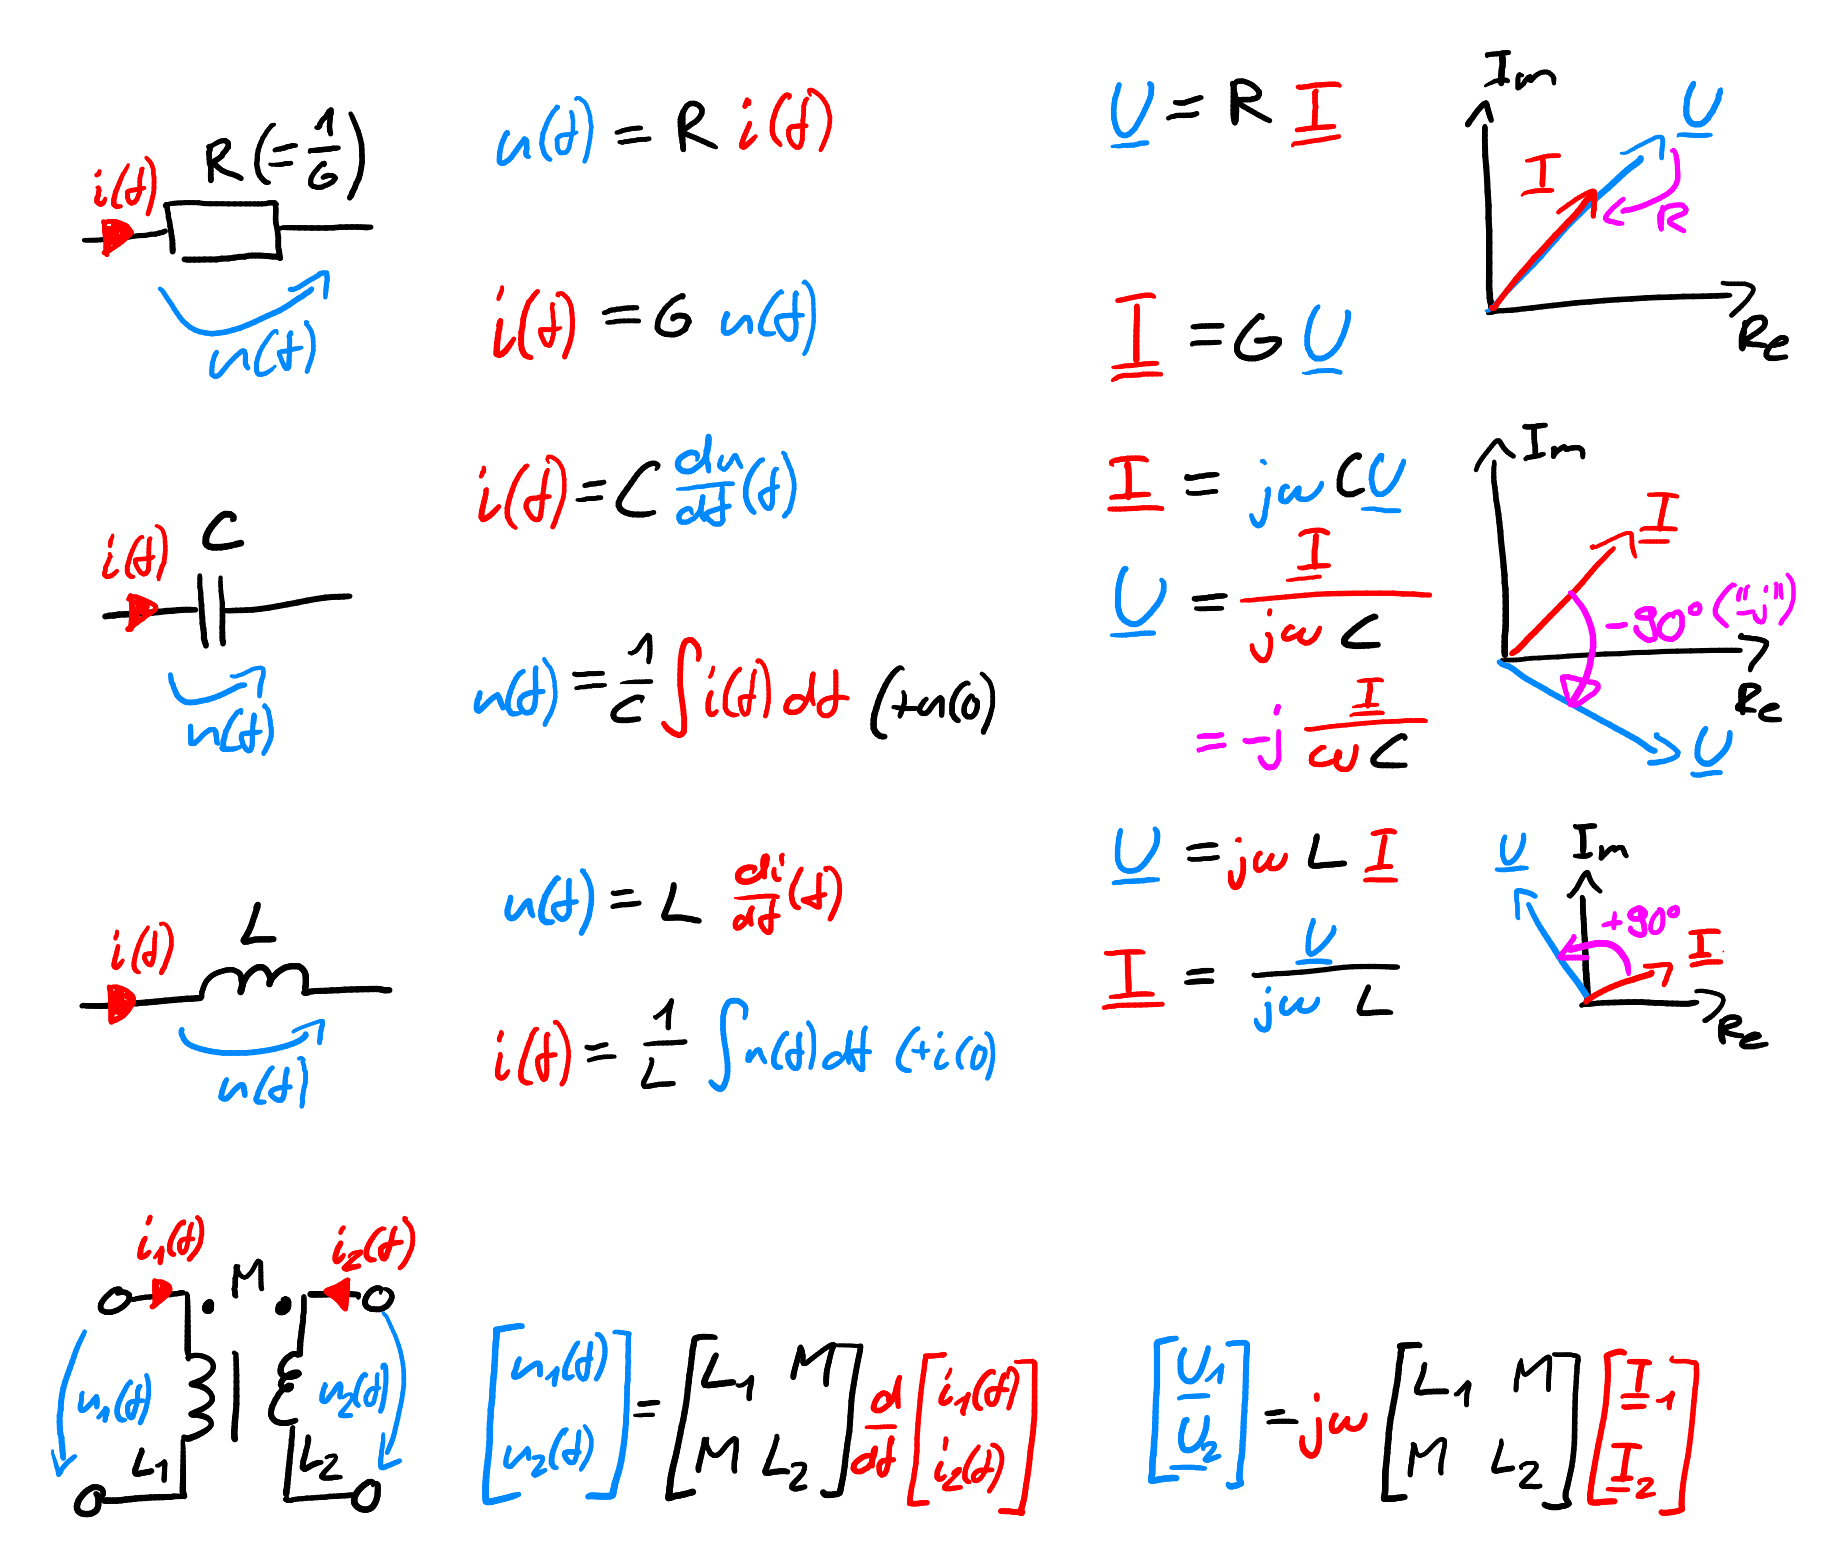 R (= 1/G)
i(t)
u(t)
u(t) = R i(t)
i(t) = G u(t)
U = R I
I = G U
Im
U
I
R
Re
C
i(t)
u(t)
i(t) = C du/dt (t)
u(t) = 1/C ∫ i(t) dt (+u(0)
I = jω C U
U = I / jω C
= -j I / ω C
Im
I
-90° ("-j")
Re
U
L
i(t)
u(t)
u(t) = L di/dt (t)
i(t) = 1/L ∫ u(t) dt (+i(0)
U = jω L I
I = U / jω L
U
Im
+90°
I
Re
i1(t) M i2(t)
u1(t) u2(t)
L1 L2
[u1(t) u2(t)] = [L1 M M L2] d/dt [i1(t) i2(t)]
[U1 U2] = jω [L1 M M L2] [I1 I2]